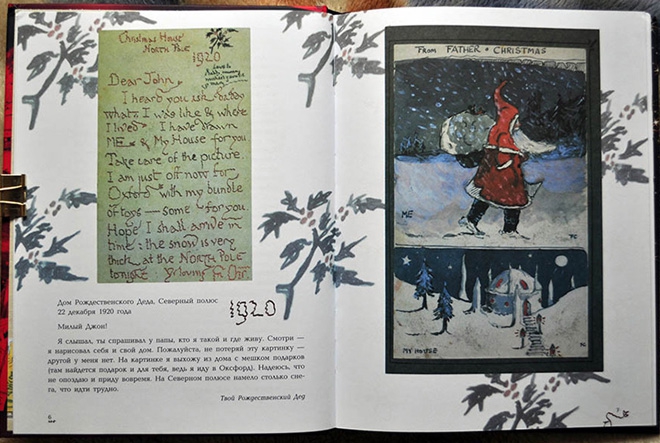 Christmas House
NORTH POLE
1920
Love to
Daddy, Mummy
Michael & Auntie
Dear John
I heard you ask daddy
what I was like & where
I lived. I have drawn
ME & My House for you
Take care of the picture.
I am just off now for
Oxford with my bundle
of toys — some for you.
Hope I shall arrive in
time: the snow is very
thick at the NORTH POLE
tonight. Yr loving Fr. Chr.
Дом Рождественского Деда, Северный полюс
22 декабря 1920 года
1920
Милый Джон!
Я слышал, ты спрашивал у папы, кто я такой и где живу. Смотри —
я нарисовал себя и свой дом. Пожалуйста, не потеряй эту картинку —
другой у меня нет. На картинке я выхожу из дома с мешком подарков
(там найдется подарок и для тебя, ведь я иду в Оксфорд). Надеюсь, что
не опоздаю и приду вовремя. На Северном полюсе намело столько сне-
га, что идти трудно.
Твой Рождественский Дед
6
FROM FATHER CHRISTMAS
ME
FC
MY HOUSE
7